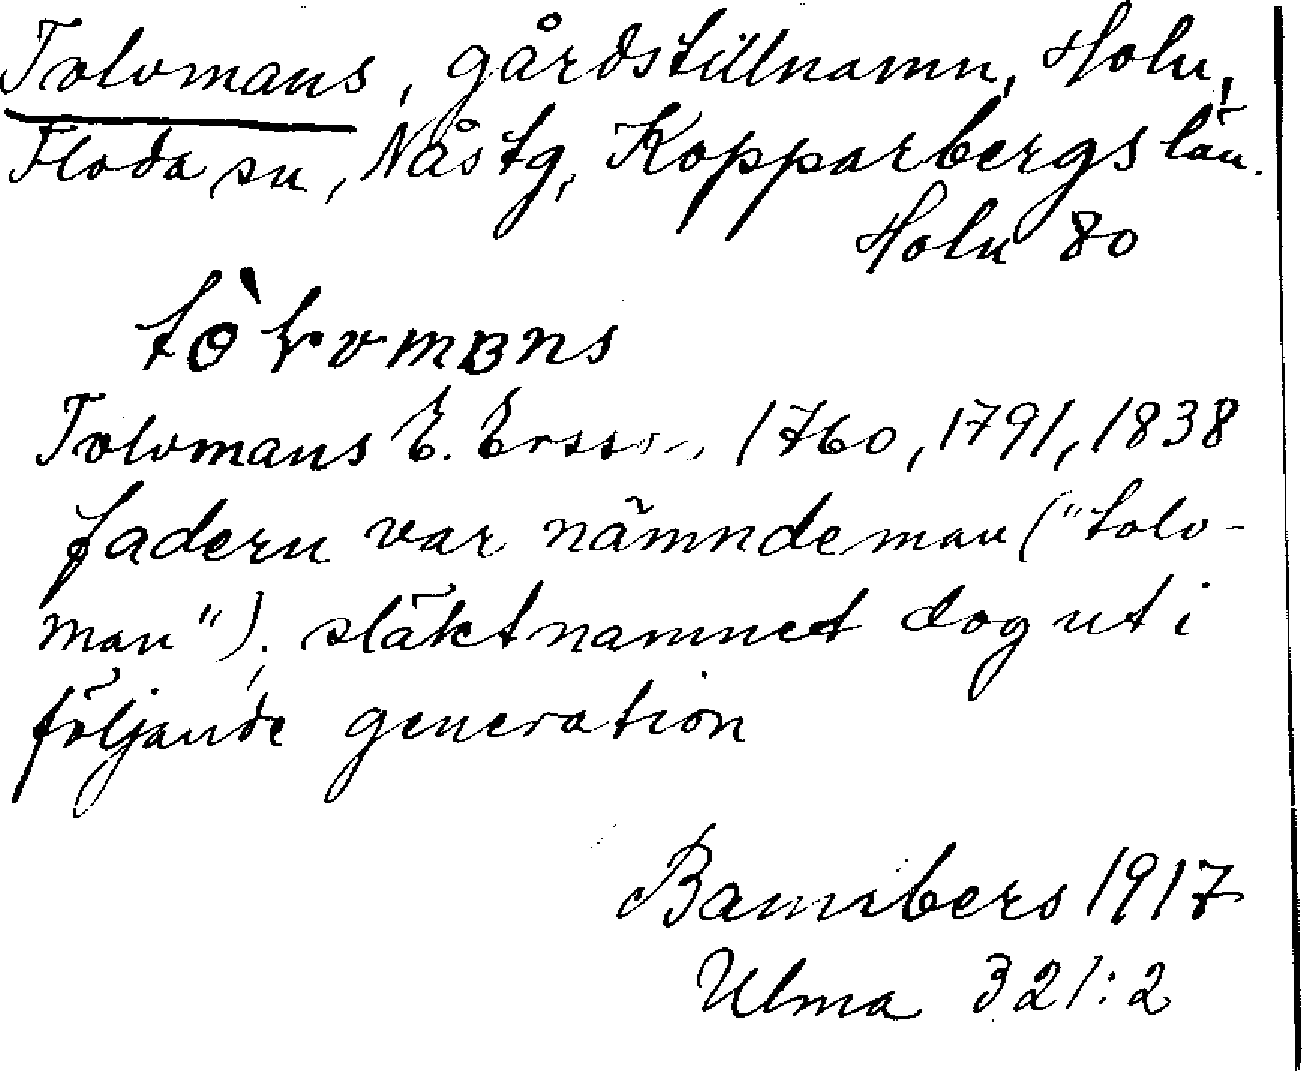 Tolvmans, gårdstillnamn, Holn,
Floda sn, Nås tg, Kopparbergs län.
Holn 80
Tolvmans E. Ersson, 1760, 1791, 1838
fadern var nämndeman ("tolv-
man"); släktnamnet dog ut i
följande generation
Bannbers 1917
Ulma 321:2